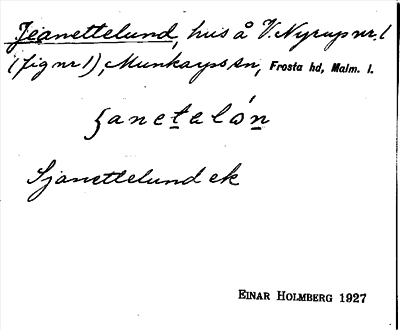 Jeanettelund, hus å V. Nyrup nr. 1
(fig nr 1), Munkarps sn, Frosta hd, Malm. l.
Sjanettelund ek
EINAR HOLMBERG 1927